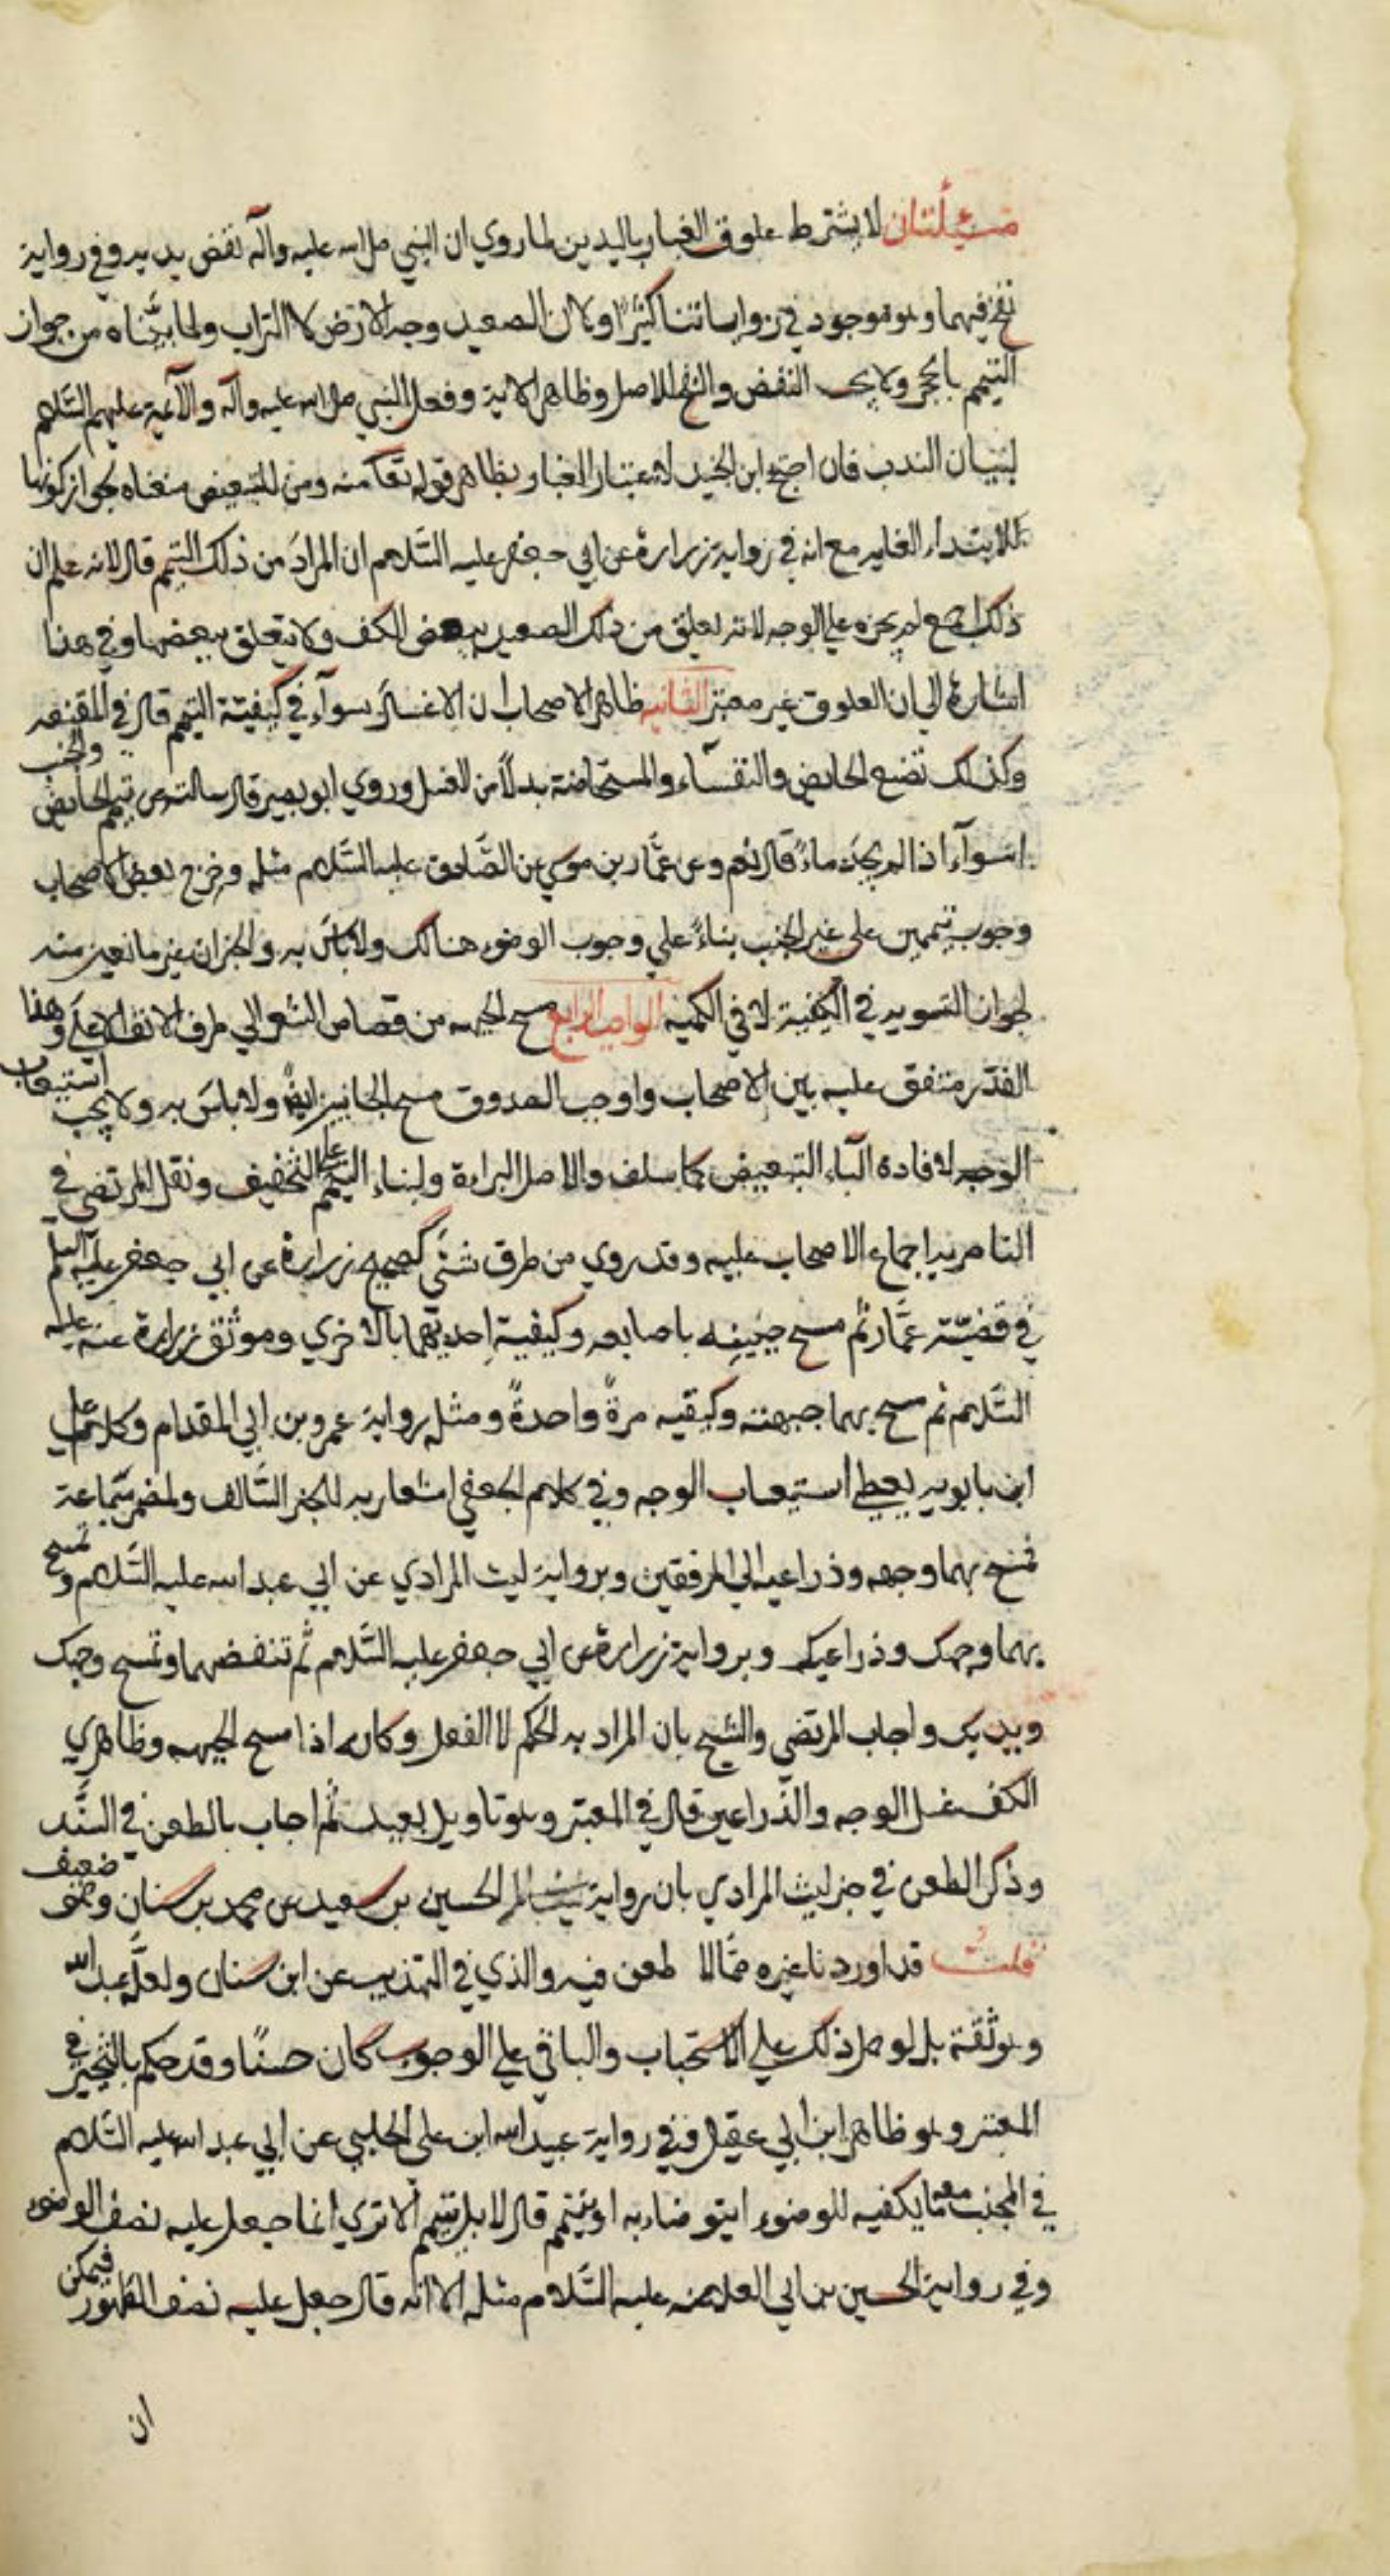 مسئلتان لا يشترط علوق الغبار باليدين لما روي ان النبي صلى الله عليه وآله نفض يديه وفي رواية
نفخ فيهما وهو موجود في رواياتنا كثيرًا ولان الصعيد وجه الارض لا التراب ولما بيّناه من جواز
التيمم بالحجر ولا يجب النفض والنفخ للاصل وظاهر الاية وفعل النبي صلى الله عليه وآله والآئمة عليهم السّلام
لبيان الندب فان احتج ابن الجنيد لاعتبار الغبار بظاهر قوله تعا منه ومن للتبعيض منعناه لجواز كونها
للابتداء الغاية مع انه في رواية زرارة عن ابي جعفر عليه السّلام ان المراد من ذلك التيمم قال لانه علم ان
ذلك اجمع لم يجره على الوجه لانه يعلق من ذلك الصعيد ببعض الكف ولا يعلق ببعضها وفي هذا
اشارة الي ان العلوق غير معتبر الثانيه ظاهر الاصحاب ان الاغسال سوآء في كيفيّة التيمم قال في المقنعه
وكذلك تصنع الحايض والنفسآء والمستحاضة بدلًا من الغسل وروي ابو بصير قال سالته عن تيمم الحايض والجنب
سوآء اذا لم يجد ماءً قال نعم وعن عمّار بن موسي عن الصّادق عليه السّلام مثله وخرج بعض الاصحاب
وجوب تيممين على غير الجنب بناءً علي وجوب الوضوء هنالك ولا باس به والخبران غير مانعين منه
لجواز التسويه في الكيفية لا في الكميه الواجب الرابع مسح الجبهه من قصاص الشعر الي طرف الانف الاعلى وهذا
القدر متفق عليه بين الاصحاب واوجب الصدوق مسح الجانبين ايضًا ولا باس به ولا يجب استيعاب
الوجه لافادة البآء التبعيض كما سلف والاصل البراءة ولبناء التيمم على التخفيف ونقل المرتضي في
الناصريه اجماع الاصحاب عليه وقد روي من طرق شتّي كصحيح زرارة عن ابي جعفر عليه السلم
في قضيّة عمّار ثم مسح جبينه باصابعه وكيفية احديهما بالاخري وموثق زرارة عنه عليه
السّلام ثم مسح بهما جبهته وكفيه مرةً واحدةً ومثله رواية عمرو بن ابي المقدام وكلام علي
ابن بابويه يعطي استيعاب الوجه وفي كلام الجعفي اشعار به للخبر السّالف ولمضمر سماعة
فمسح بهما وجهه وذراعيه الي المرفقين وبرواية ليث المرادي عن ابي عبد الله عليه السّلام وتمسح
بهما وجهك وذراعيك وبرواية زرارة عن ابي جعفر عليه السّلام ثم تنفضهما وتمسح وجهك
ويديك واجاب المرتضي والشيخ بان المراد به الحكم لا الفعل وكانه اذا مسح الجبهه وظاهري
الكف غسل الوجه والذّراعين قال في المعتبر وهو تاويل بعيد ثم اجاب بالطعن في السّند
وذكر الطعن في خبر ليث المرادي بان رواية الحسين بن سعيد عن محمد بن سنان وهو ضعيف
قلت قد اوردنا غيره ممّا لا طعن فيه والذي في التهذيب عن ابن سنان ولعلّه عبد الله
وهو ثقة بل لو حمل ذلك علي الاستحباب والباقي علي الوجوب كان حسنًا وقد حكم بالتخيير في
المعتبر وهو ظاهر ابن ابي عقيل وفي رواية عبيد الله ابن علي الحلبي عن ابي عبد الله عليه السّلام
في المجنب معه ما يكفيه للوضوء ايتوضاء به او يتيمم قال لا بل يتيمم الا تري انما جعل عليه نصف الوضوء
وفي رواية الحسين بن ابي العلا عنه عليه السّلام مثله الا انه قال جعل عليه نصف الطهور فيمكن
ان